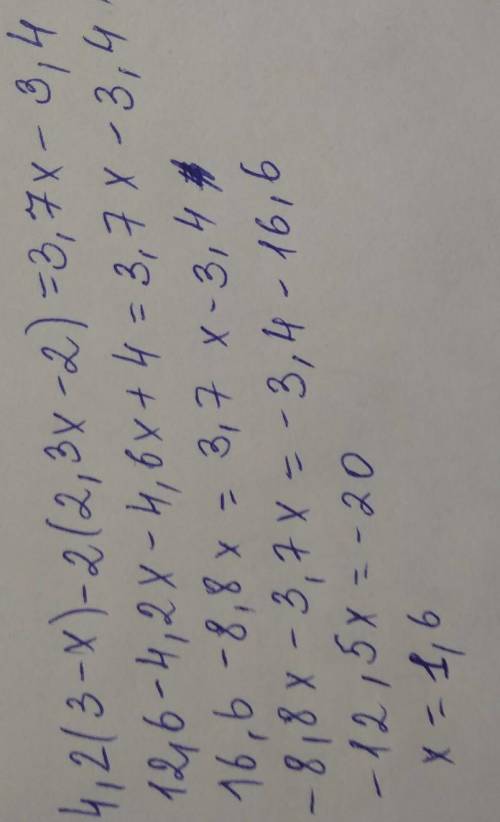 4,2(3-x)-2(2,3x-2)=3,7x-3,4
12,6-4,2x-4,6x+4=3,7x-3,4
16,6-8,8x=3,7x-3,4
-8,8x-3,7x=-3,4-16,6
-12,5x=-20
x=1,6